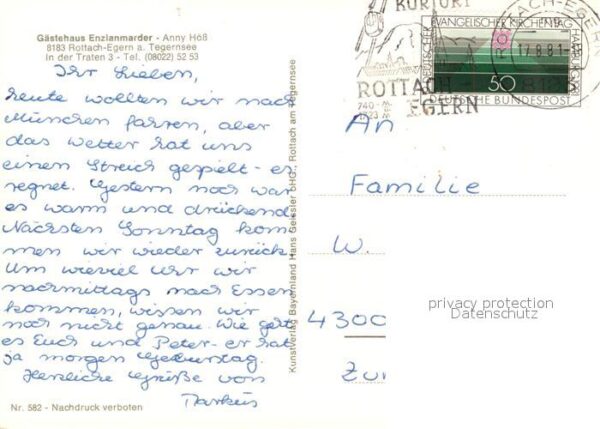 Gästehaus Enzianmarder - Anny Höß
8183 Rottach-Egern a. Tegernsee
In der Traten 3 - Tel. (08022) 52 53
Ihr Lieben,
heute wollten wir nach
München fahren, aber
das Wetter hat uns
einen Streich gespielt - es
regnet. Gestern noch war
es warm und drückend.
Nächsten Sonntag kom
men wir wieder zurück.
Um wieviel Uhr wir
nachmittags nach Essen
kommen, wissen wir
noch nicht genau. Wie geht
es Euch und Peter - er hat
ja morgen Geburtstag.
Herzliche Grüße von
Markus
Nr. 582 - Nachdruck verboten
Kunstverlag Bayernland Hans Geissler oHG., Rottach am Tegernsee
KURORT
ROTTACH
EGERN
740 - M
1723 M
ROTTACH-EGERN
17.8.81
8183
DEUTSCHER EVANGELISCHER KIRCHENTAG HAMBURG 1981
50
DEUTSCHE BUNDESPOST
An
Familie
W.
4300
Zur
privacy protection
Datenschutz